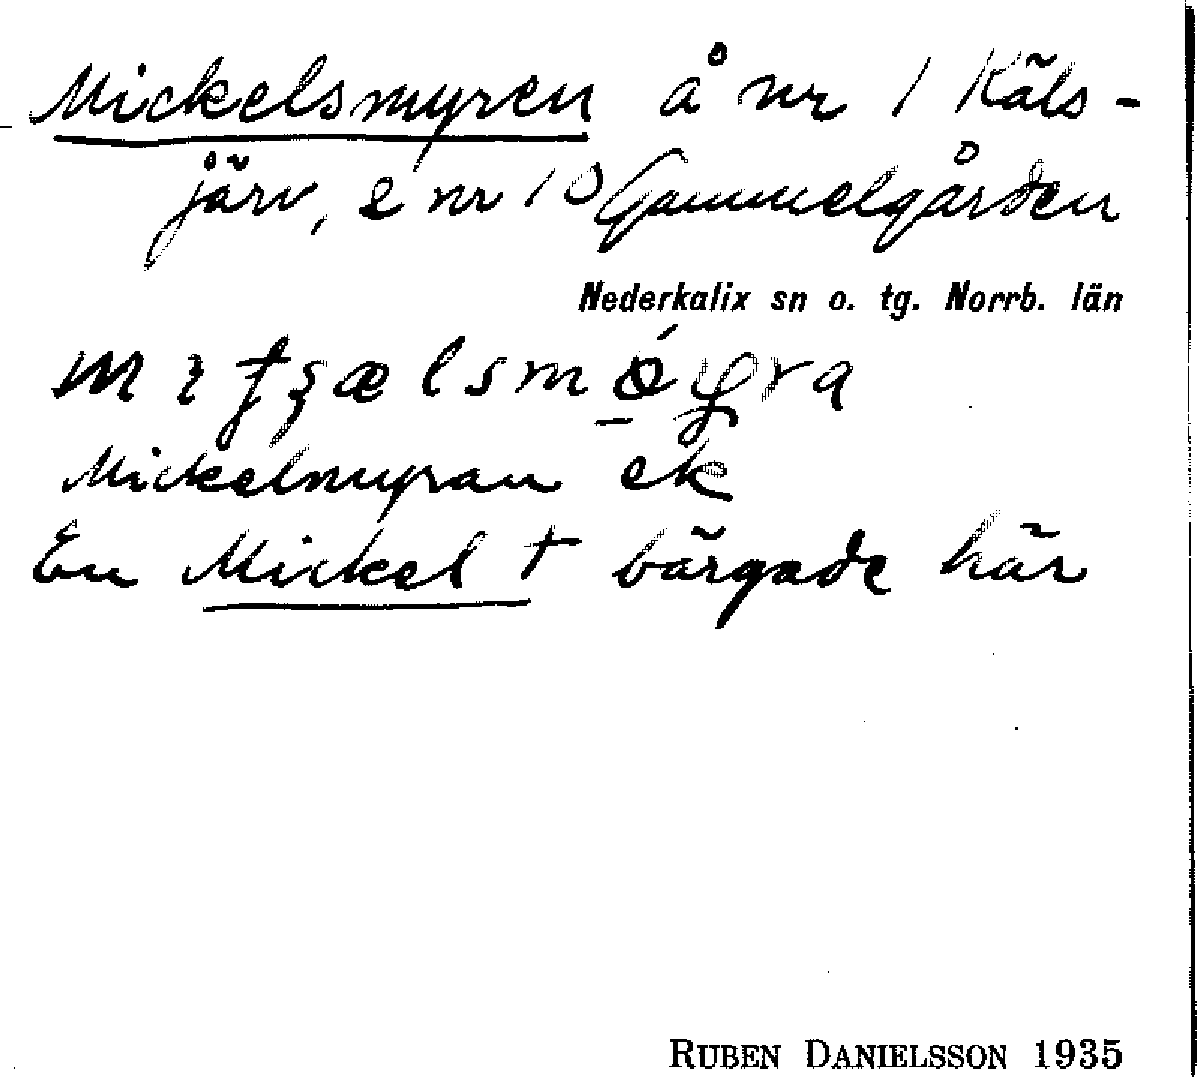 Mickelsmyren å nr 1 Käls-
järv, e nr 10 Gammelgården
Nederkalix sn o. tg. Norrb. län
Mickelmyran ek
En Mickel † bärgade här
RUBEN DANIELSSON 1935